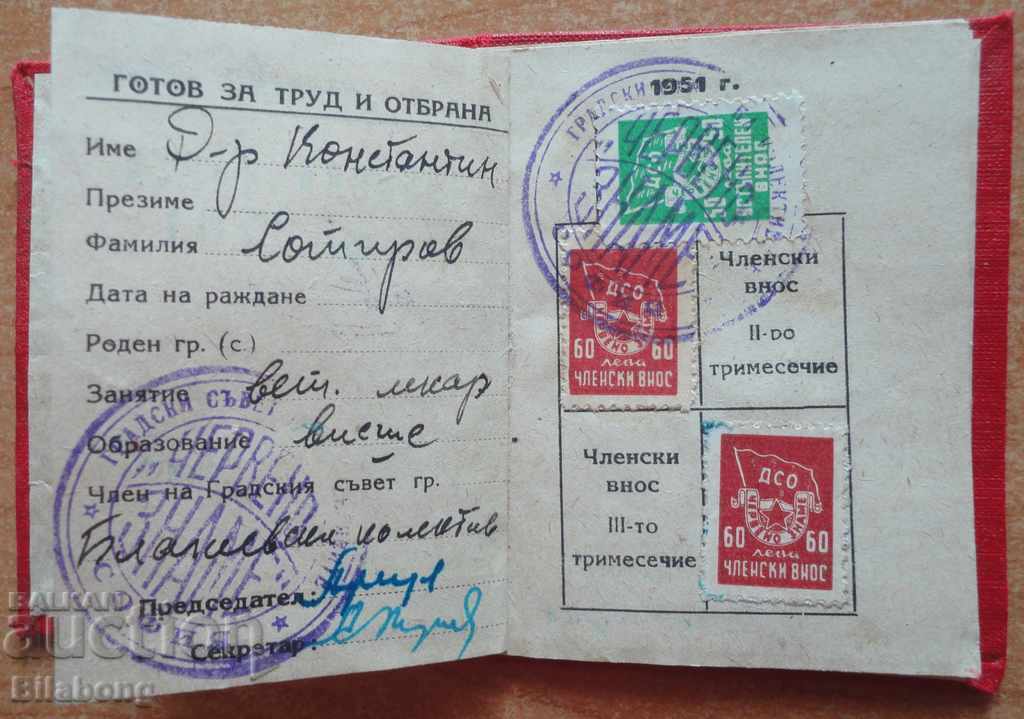 ГОТОВ ЗА ТРУД И ОТБРАНА
Име Д-р Константин
Презиме
Фамилия Сотиров
Дата на раждане
Роден гр. (с.)
Занятие вет. лекар
Образование висше
Член на Градския съвет гр.
колектив
Председател:
Секретар:
ГРАДСКИ СЪВЕТ
„ЧЕРВЕНО
ЗНАМЕ"
1951 г.
ГРАДСКИ
ДСО
ВСТЪПИТЕЛЕН
ВНОС
ДСО
ЧЕРВЕНО ЗНАМЕ
60 60
лева
ЧЛЕНСКИ ВНОС
Членски
внос
II-ро
тримесечие
Членски
внос
III-то
тримесечие
ДСО
ЧЕРВЕНО ЗНАМЕ
60 60
лева
ЧЛЕНСКИ ВНОС
BALKAN
auction
Bilabong